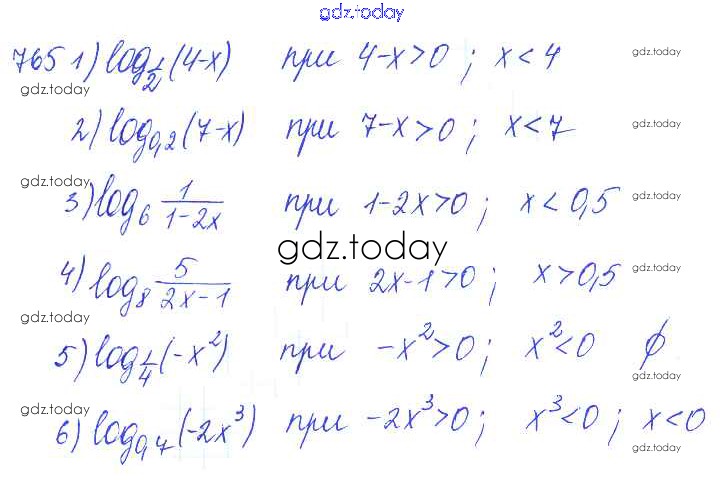 gdz.today
765 1) log_{1/2}(4-x) при 4-x>0 ; x<4
gdz.today gdz.today
2) log_{0,2}(7-x) при 7-x>0 ; x<7 gdz.today
gdz.today
3) log_6 1/(1-2x) при 1-2x>0 ; x<0,5 gdz.today
gdz.today
4) log_8 5/(2x-1) при 2x-1>0 ; x>0,5 gdz.today
gdz.today
5) log_{1/4}(-x²) при -x²>0 ; x²<0 ∅
gdz.today
gdz.today
6) log_{0,7}(-2x³) при -2x³>0 ; x³<0 ; x<0
gdz.today